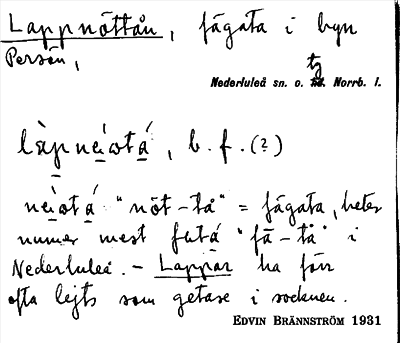 Lappnöttån, fägata i byn
Persön,
Nederluleå sn. o. tg Norrb. l.
làpneiotá, b. f. (?)
neiotá "nöt-tå" = fägata, heter
numer mest fatá "fä-tå" i
Nederluleå. - Lappar ha förr
ofta lejts som getare i socknen.
EDVIN BRÄNNSTRÖM 1931